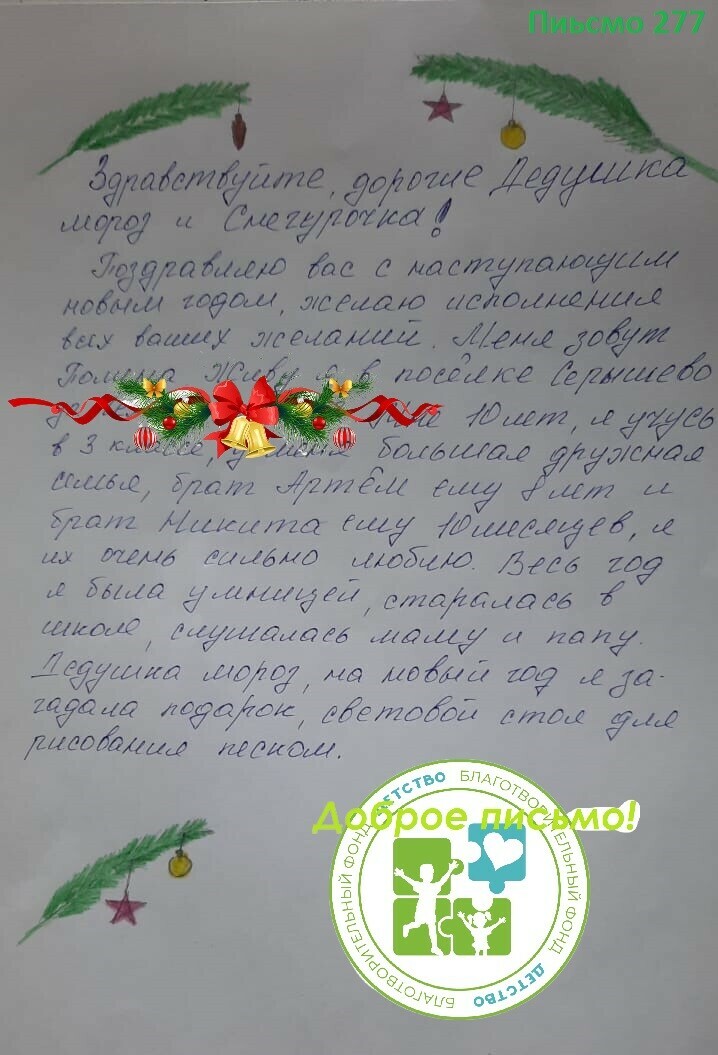 Письмо 277
Здравствуйте, дорогие Дедушка
мороз и Снегурочка!
Поздравляю вас с наступающим
новым годом, желаю исполнения
всех ваших желаний. Меня зовут
Полина Живу я в посёлке Серышево
10 лет, я учусь
в 3 классе, у меня большая дружная
семья, брат Артём ему 8 лет и
брат Никита ему 10 месяцев, я
их очень сильно люблю. Весь год
я была умницей, старалась в
школе, слушалась маму и папу.
Дедушка мороз, на новый год я за-
гадала подарок, световой стол для
рисования песком.
Доброе письмо!
БЛАГОТВОРИТЕЛЬНЫЙ ФОНД ДЕТСТВО
БЛАГОТВОРИТЕЛЬНЫЙ ФОНД ДЕТСТВО